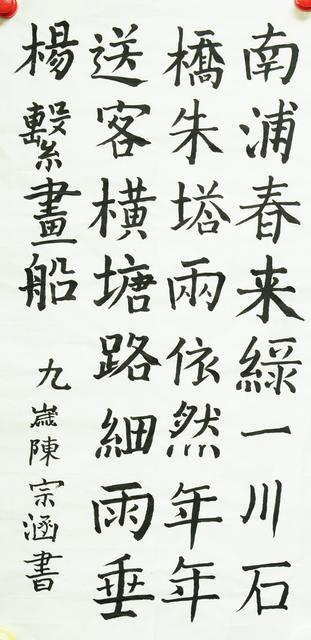 南浦春来綠一川石
橋朱塔兩依然年年
送客橫塘路細雨垂
楊繫畫船
九歲陳宗涵書